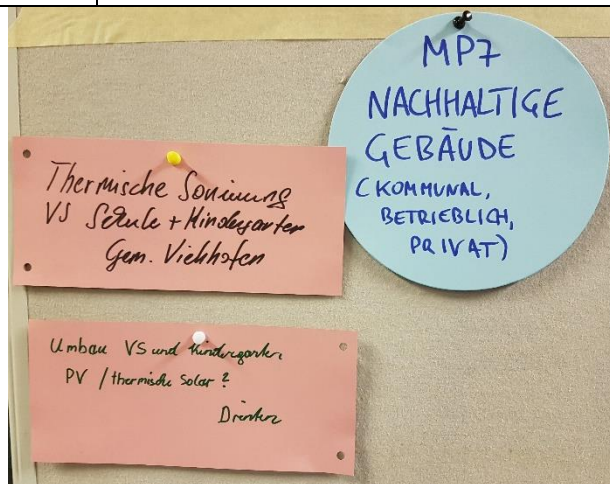 MP7
NACHHALTIGE
GEBÄUDE
(KOMMUNAL,
BETRIEBLICH,
PRIVAT)
Thermische Sanierung
VS Schule + Kindergarten
Gem. Viehhofen
Umbau VS und Kindergarten
PV / thermische Solar ?
Dienten